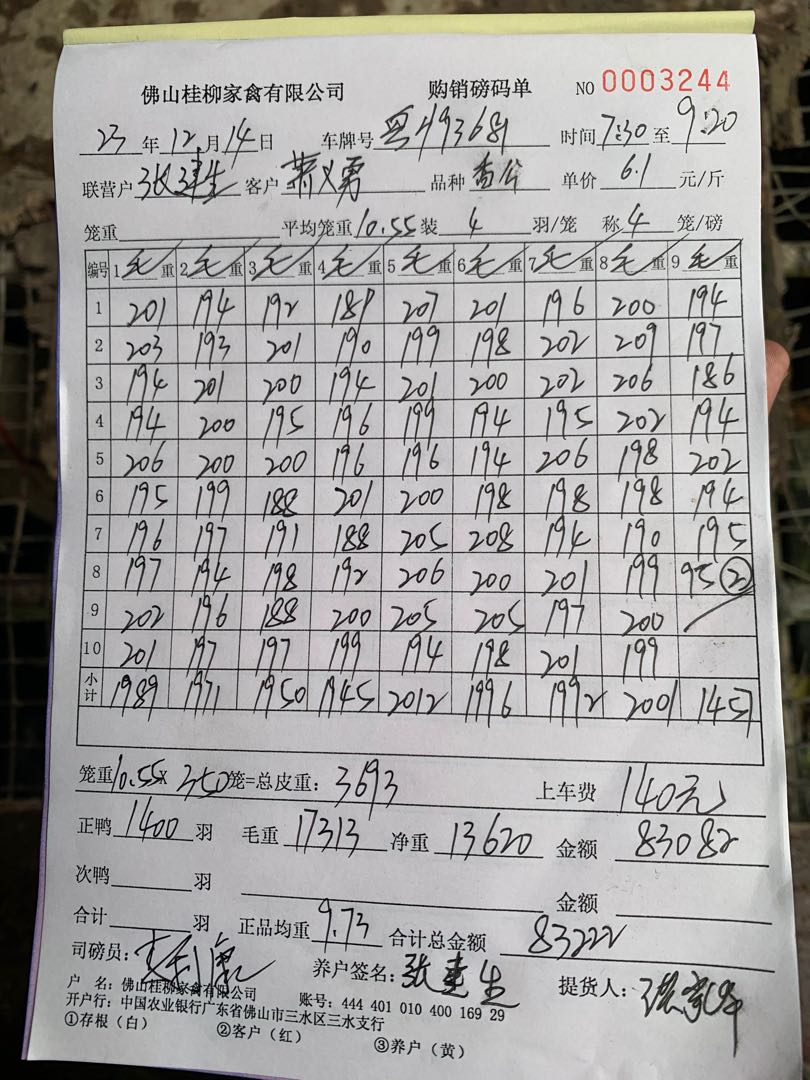 佛山桂柳家禽有限公司 购销磅码单 NO 0003244
23年12月14日 车牌号 粤 时间7:30至9:20
联营户 张建生 客户 勇 品种 香公 单价 6.1 元/斤
笼重 平均笼重10.55装 4 羽/笼 称 4 笼/磅
编号 1毛重 2毛重 3毛重 4毛重 5毛重 6毛重 7毛重 8毛重 9毛重
1 201 194 192 189 207 201 196 200 194
2 203 193 201 190 199 198 202 209 197
3 194 201 200 194 201 200 202 206 186
4 194 200 195 196 199 194 195 202 194
5 206 200 200 196 196 194 206 198 202
6 195 199 188 201 200 198 198 198 194
7 196 197 191 188 205 208 194 190 195
8 197 194 198 192 206 200 201 199 95②
9 202 196 188 200 205 205 197 200
10 201 197 197 199 194 198 201 199
小计 1989 1971 1950 1945 2012 1996 1992 2001 1457
笼重10.55×350笼=总皮重：3693 上车费 140元
正鸭 1400 羽 毛重 17313 净重 13620 金额 83082
次鸭 羽 金额
合计 羽 正品均重 9.73 合计总金额 83222
司磅员： 养户签名：张建生 提货人：
户 名：佛山桂柳家禽有限公司 账号：444 401 010 400 169 29
开户行：中国农业银行广东省佛山市三水区三水支行
①存根（白） ②客户（红） ③养户（黄）